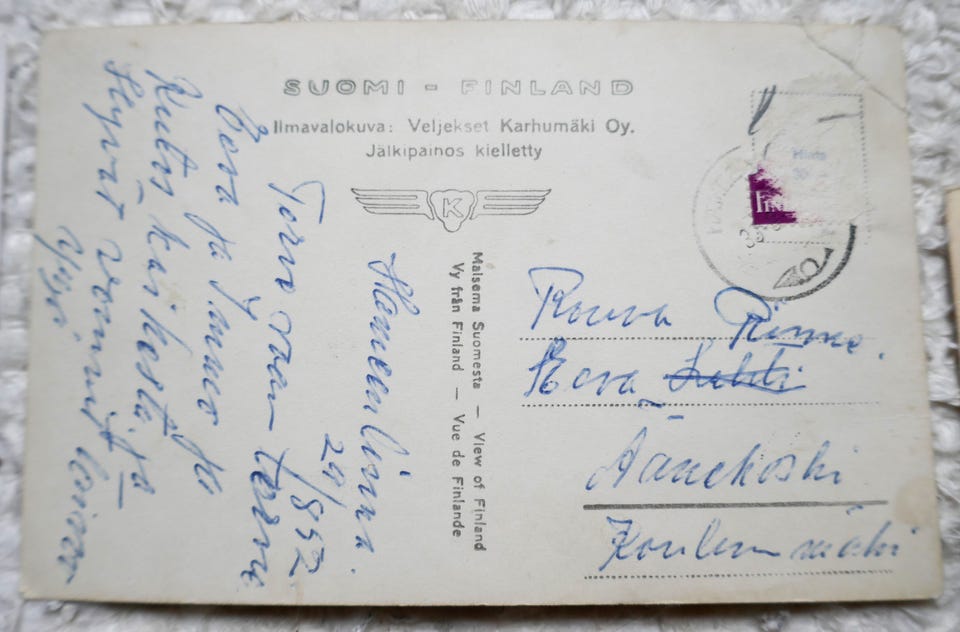 SUOMI - FINLAND
Ilmavalokuva: Veljekset Karhumäki Oy.
Jälkipainos kielletty
K
Maisema Suomesta — View of Finland
Vy från Finland — Vue de Finlande
Hämeenlinna.
29/8 52
Terve vaan terve
Eeva ja
ja
Kiitos kaikesta ja
Hyvät voinnit
FIN
Rouva Rinne.
Eeva Lehti
Äänekoski
Koulunmäki